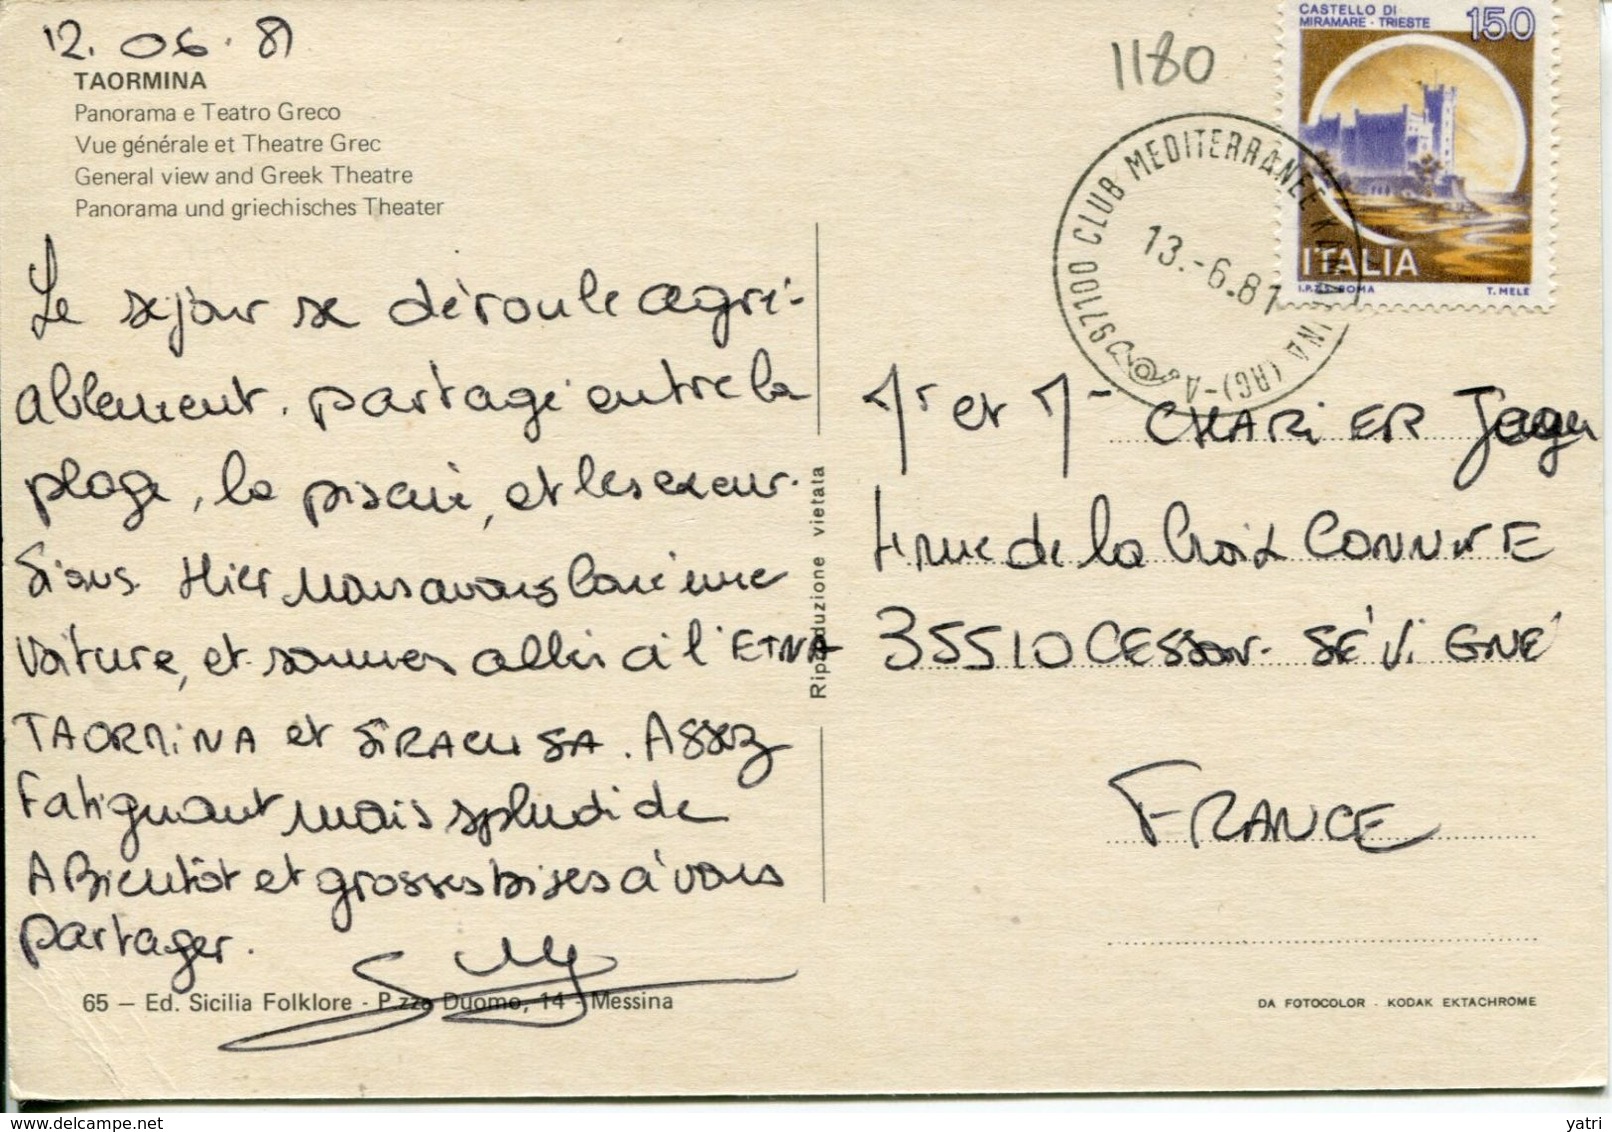 12.06.81
TAORMINA
Panorama e Teatro Greco
Vue générale et Theatre Grec
General view and Greek Theatre
Panorama und griechisches Theater
Le séjour se déroule agré-
ablement. partagé entre la
plage, la piscine, et les excur-
sions. Hier nous avons loué une
voiture, et sommes allés à l'ETNA
TAORMINA et SIRACUSA. Assez
Fatiguant mais splendide
A Bientôt et grosses bises à vous
partager.
65 – Ed. Sicilia Folklore - P.zza Duomo, 14 - Messina
Riproduzione vietata
1180
CASTELLO DI
MIRAMARE - TRIESTE
150
ITALIA
I.P.Z.S. ROMA
T. MELE
97100 CLUB MEDITERRANEE KAMARINA (RG)-A
13.-6.81
Mr et Mme CHARIER
4 rue de la Croix CONNUE
35510 CESSON-SÉVIGNÉ
FRANCE
DA FOTOCOLOR - KODAK EKTACHROME
yatri
www.delcampe.net